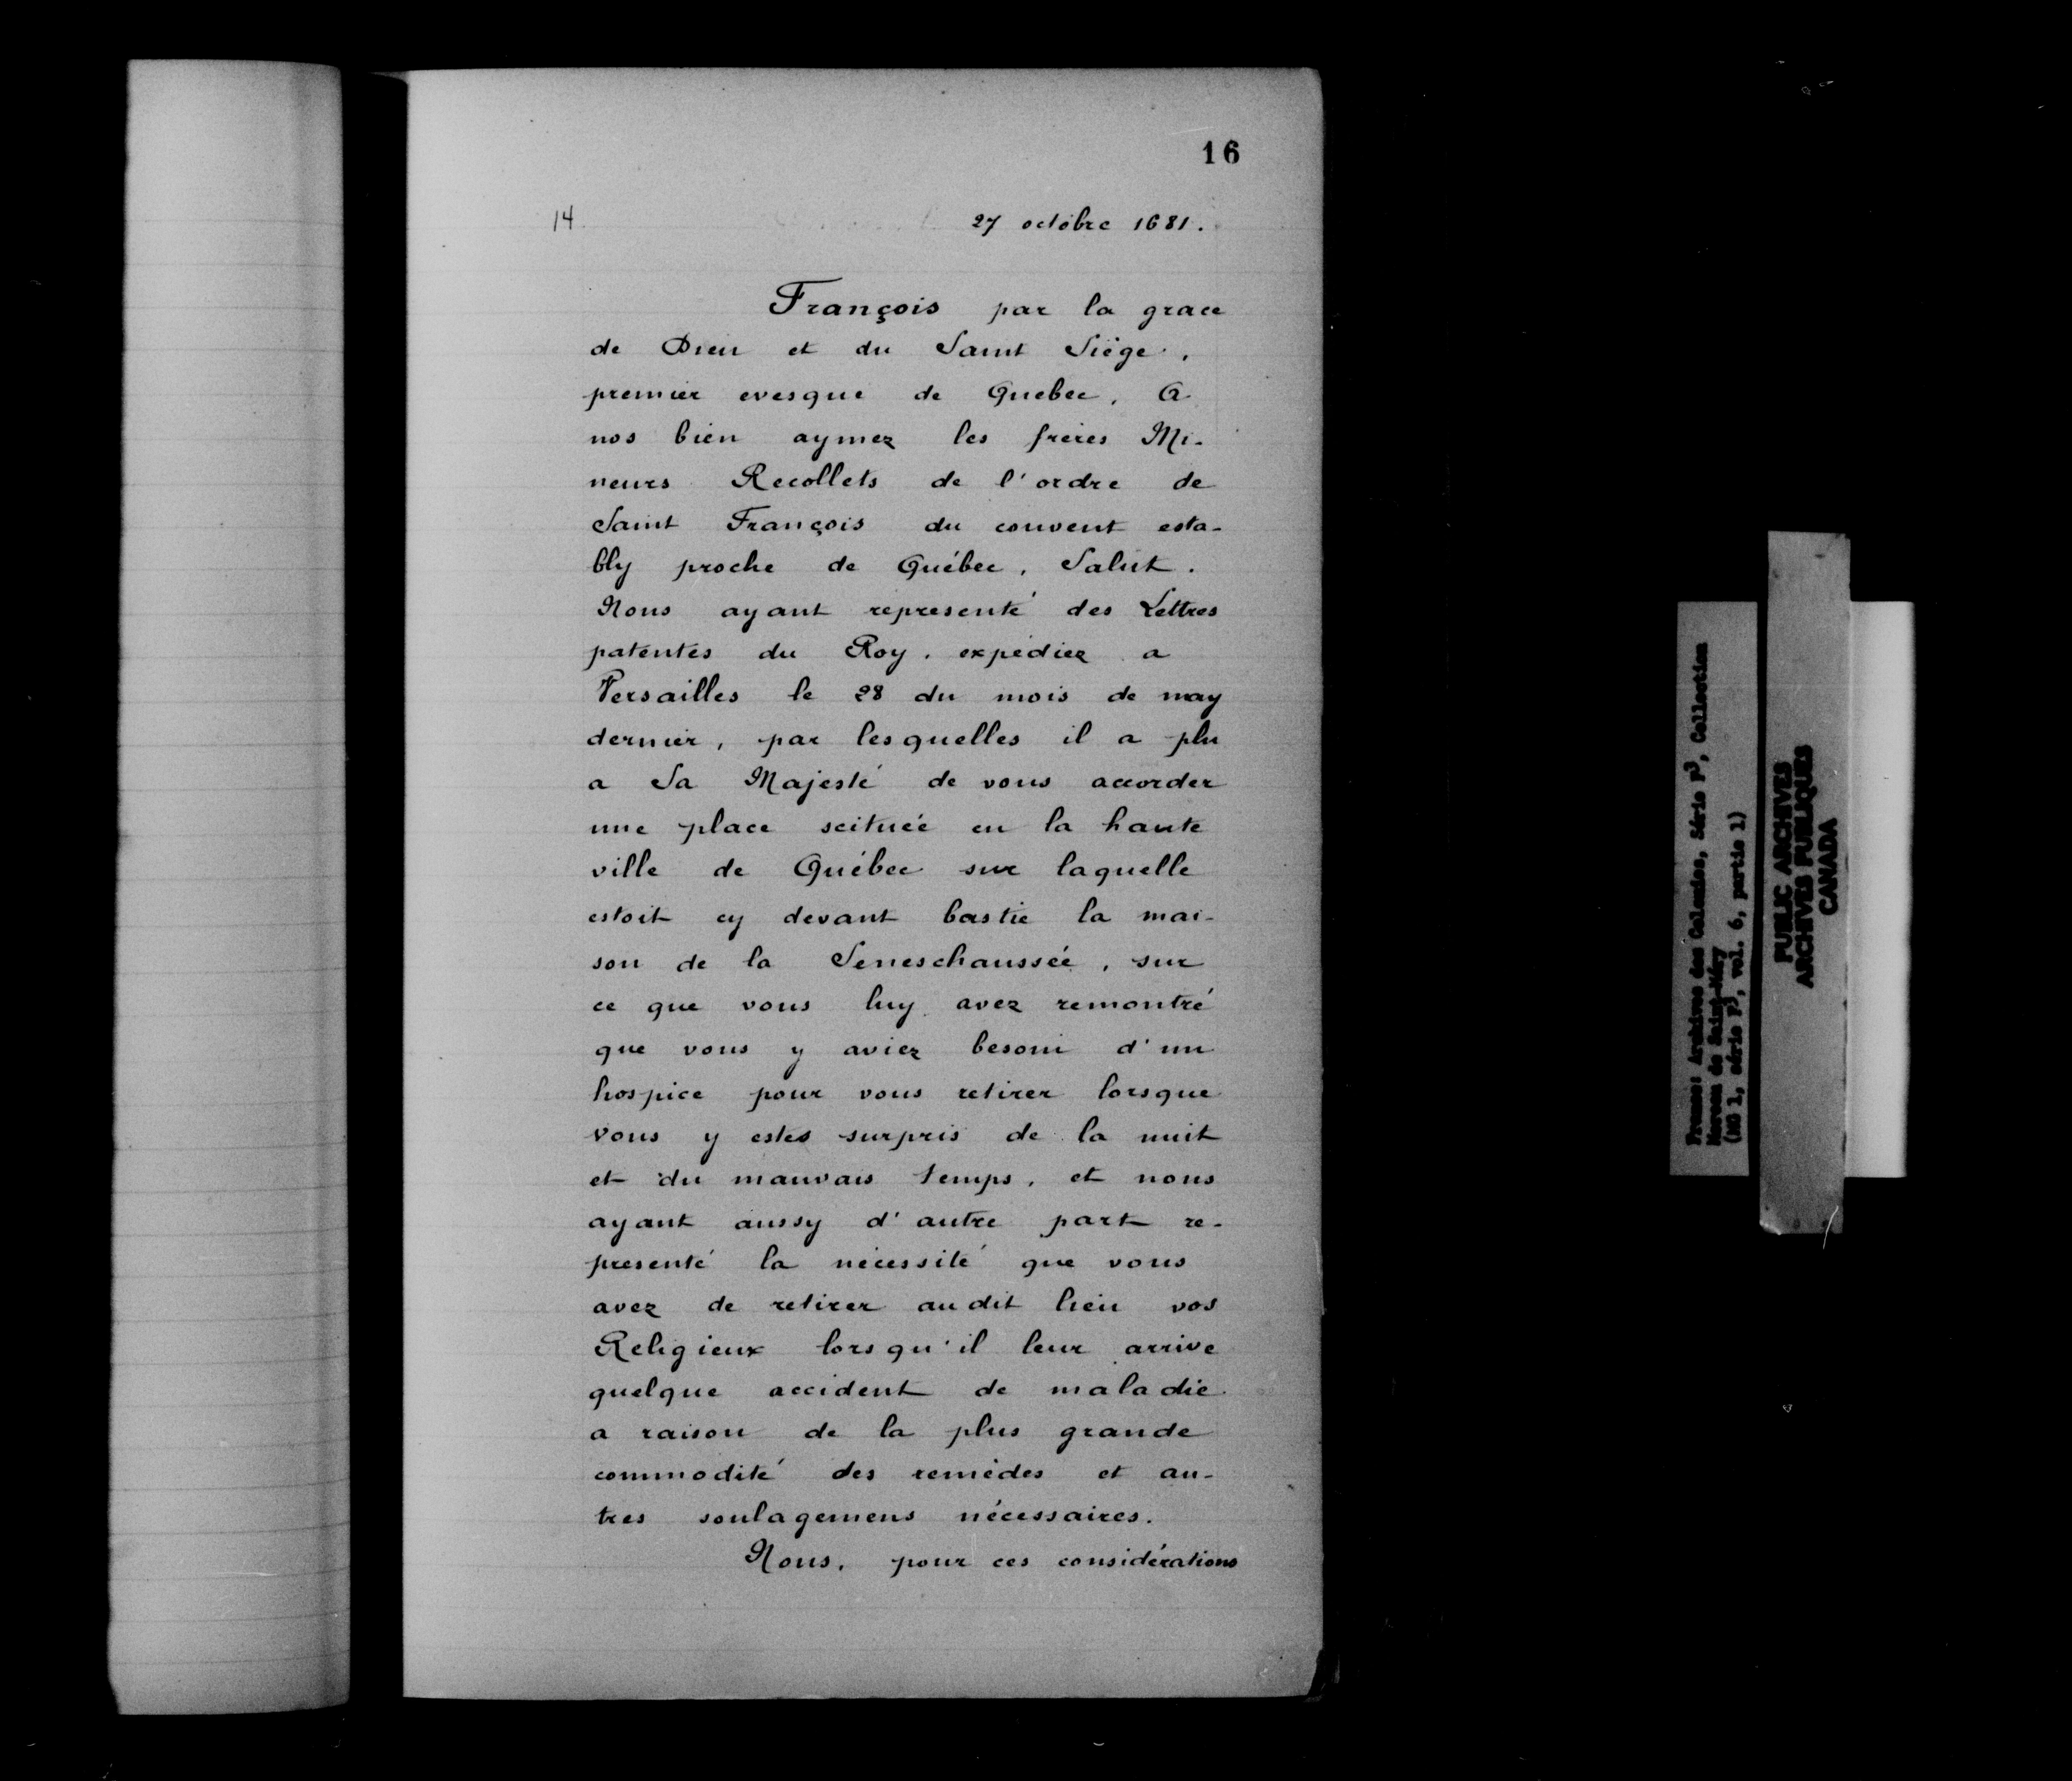 16
14
27 octobre 1681.
François par la grace
de Dieu et du Saint Siège,
premier evesque de Quebec, A
nos bien aymez les frères Mi-
neurs Recollets de l'ordre de
Saint François du couvent esta-
bly proche de Québec, Salut.
Nous ayant representé des Lettres
patentes du Roy, expédiez a
Versailles le 28 du mois de may
dernier, par lesquelles il a plu
a Sa Majesté de vous accorder
une place scituée en la haute
ville de Québec sur laquelle
estoit cy devant bastie la mai-
son de la Seneschaussée, sur
ce que vous luy avez remontré
que vous y aviez besoin d'un
hospice pour vous retirer lorsque
vous y estes surpris de la nuit
et du mauvais temps, et nous
ayant aussy d'autre part re-
presenté la nécessité que vous
avez de retirer audit lieu vos
Religieux lorsqu'il leur arrive
quelque accident de maladie
a raison de la plus grande
commodité des remèdes et au-
tres soulagemens nécessaires.
Nous, pour ces considérations
France: Archives des Colonies, Série F3, Collection
Moreau de Saint-Méry
(MG 1, série F3, vol. 6, partie 1)
PUBLIC ARCHIVES
ARCHIVES PUBLIQUES
CANADA